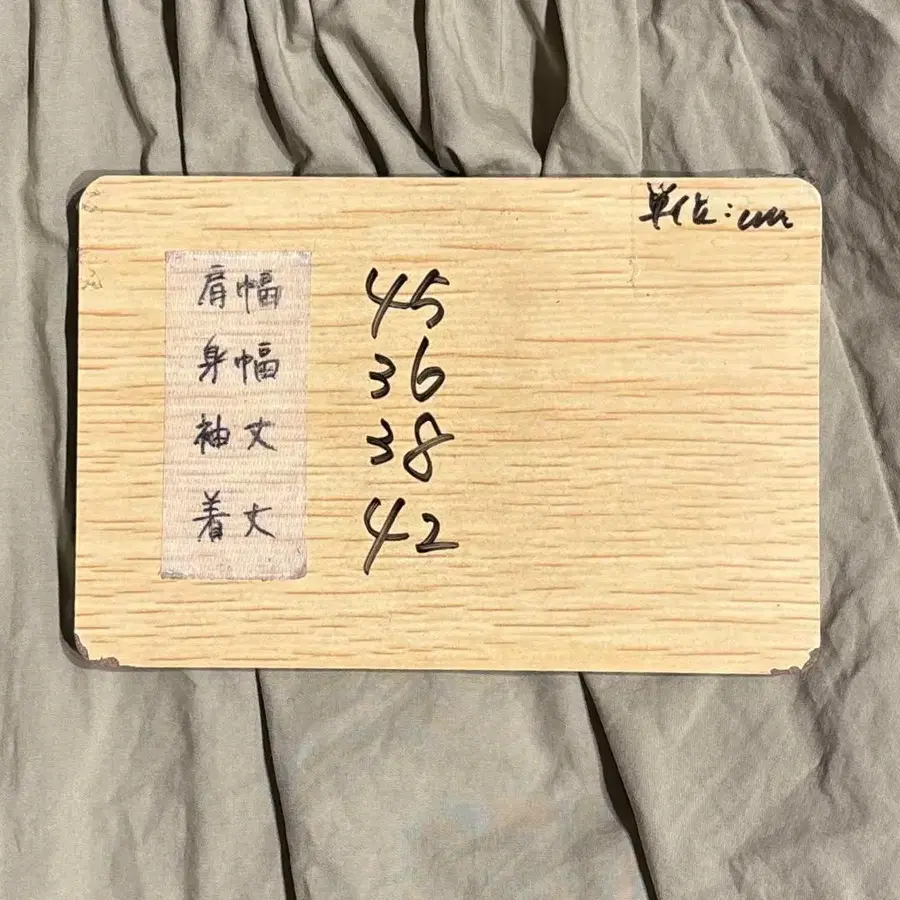 単位:cm
肩幅 45
身幅 36
袖丈 38
着丈 42